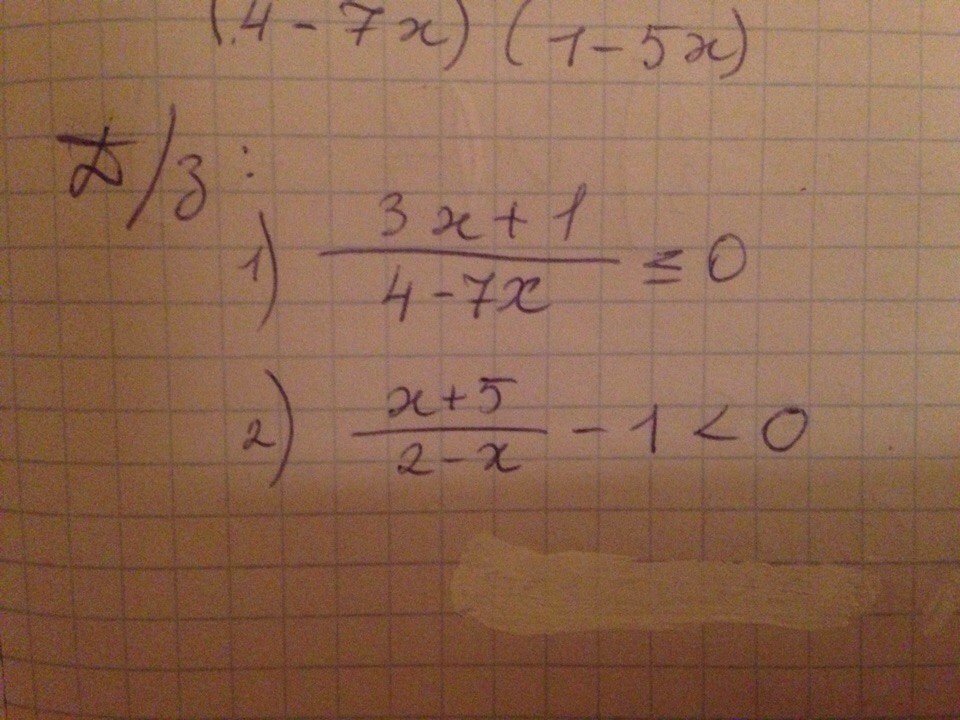 (4-7x) (1-5x)
Д/з:
1) (3x+1)/(4-7x) ≤ 0
2) (x+5)/(2-x) - 1 < 0